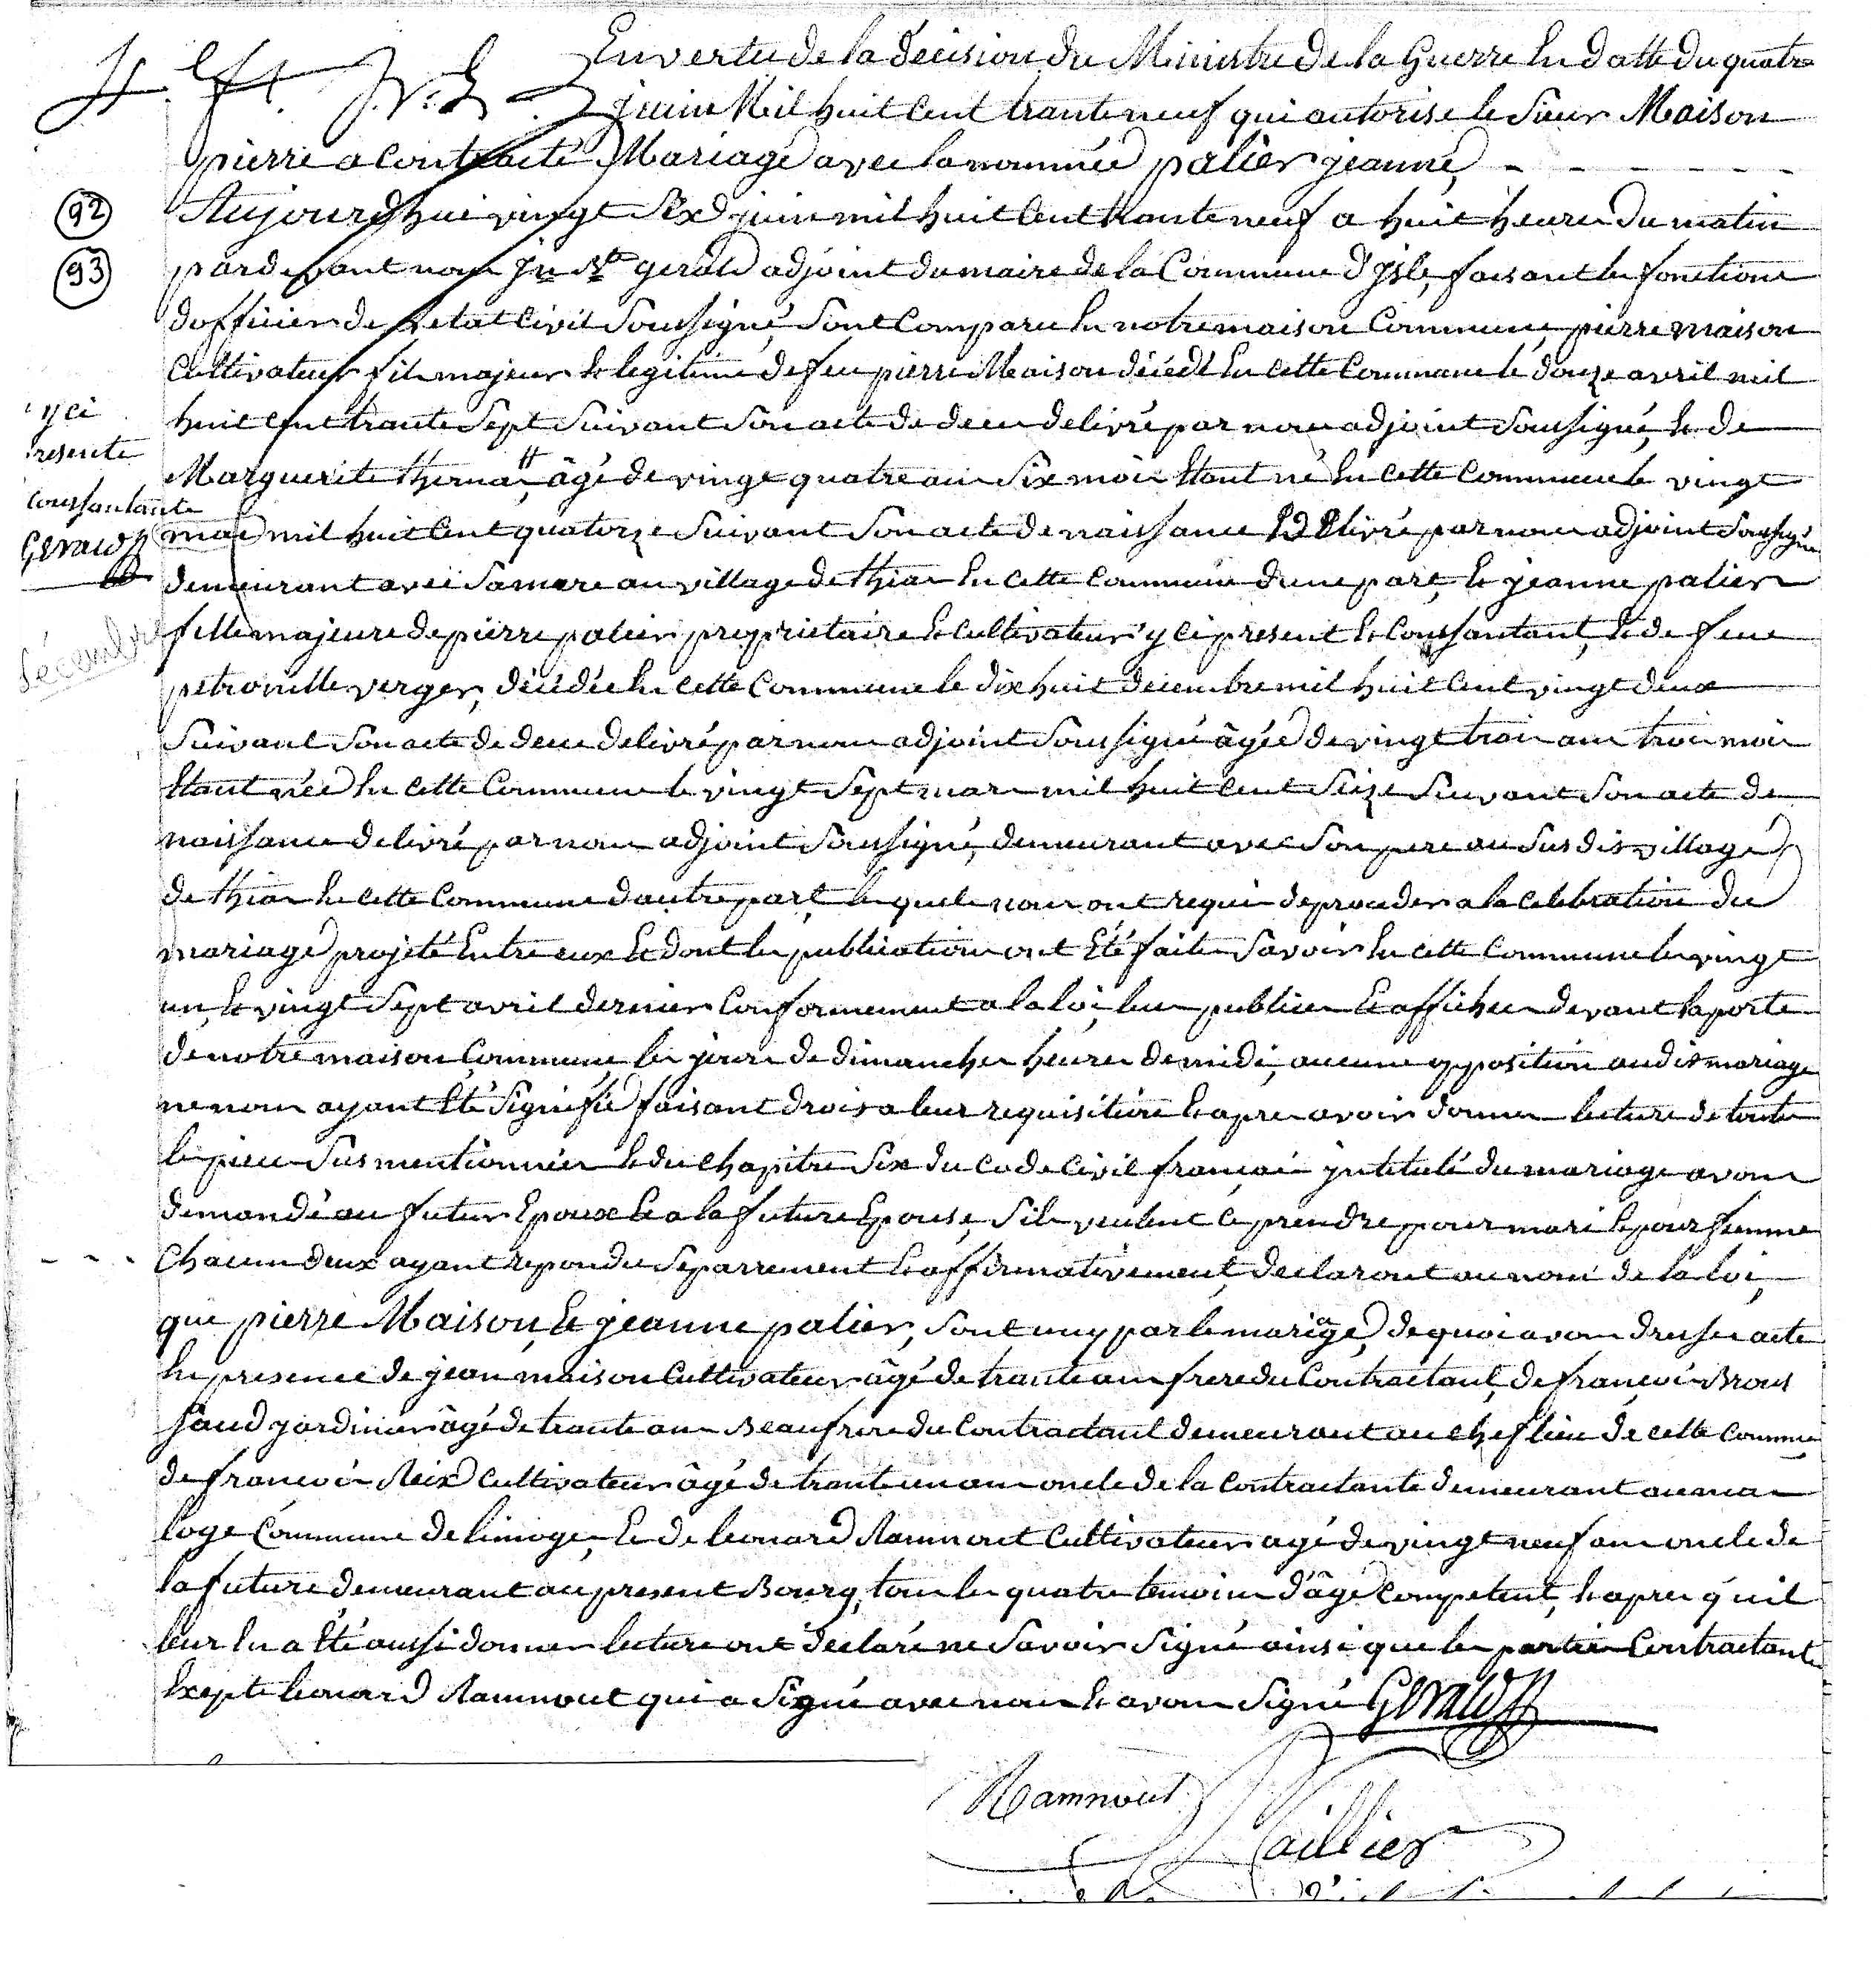 En vertu de la décision du Ministre de la Guerre En datte du quatre
juin Mil huit Cent trante neuf qui autorise le Sieur Maison
pierre a Contracté Mariage avec la nommée palier jeanne
92
93
Aujourdhui vingt Six juin mil huit Cent trante neuf a huit heures du matin
pardevant nous Jn Bte gerald adjoint du maire de la Commune d'jsle, faisant les fonctions
dofficier de Letat Civil Soussigné, Sont Comparu En notre maison Commune, pierre maison
Cultivateur fils majeur & legitime de feu pierre Maison décédé En Cette Commune le douze avril mil
huit Cent trante Sept Suivant Son acte de deces delivré par nous adjoint Soussigné, & de
Marguerite thomas, # âgé de vingt quatre ans Six mois Etant né En Cette Commune le vingt
# yci
presente
Coussantante
Gerald
mai mil huit Cent quatorze Suivant Son acte de naissance delivré par nous adjoint Soussigné
demeurant avec Sa mere au village de thias En Cette Commune dune part, & jeanne palier
décembre
fille majeure de pierre palier proprietaire & Cultivateur yci present & Coussantant, & de feue
petronille verger, décédée En Cette Commune le dix huit decembre mil huit Cent vingt deux
Suivant Son acte de deces delivré par nous adjoint Soussigné âgée de vingt trois ans trois mois
Etant née En Cette Commune le vingt Sept mars mil huit Cent Seize Suivant Son acte de
naissance delivré par nous adjoint Soussigné, demeurant avec Son pere au Susdit village
de thias En Cette Commune dautre part, lesquels nous ont requis de proceder a la Celebration du
mariage projeté Entre eux & dont les publications ont Eté faites Savoir En Cette Commune les vingt
un, & vingt Sept avril dernier Conformement a la loi, lues publiées & affichees devant la porte
de notre maison Commune, les jours de dimanches heures de midi, aucune opposition audit mariage
ne nous ayant Eté Signifié faisant droit a leur requisitions & apres avoir donner lecture de toutes
les pieces Susmentionnées & du Chapitre Six du Code Civil français jntitulé du mariage avons
demandé au futur Epoux & a la future Epouse, S'ils veulent Se prendre pour mari & pour femme
Chacun deux ayant repondu Separrement & affirmativement, declarons au nom de la loi,
que pierre Maison, & jeanne palier, Sont uny par le mariage, de quoi avons dressé acte
En presence de jean maison Cultivateur âgé de trante ans frere du Contractant, de françois Brous
saud jardinier âgé de trante ans Beaufrere du Contractant demeurant au Chef lieu de cette Commune
de françois Reix Cultivateur âgé de trante un ans oncle de la Contractante demeurant au mas
loge Commune de limoges, & de leonard Ramnout Cultivateur agé de vingt neuf ans oncle de
la future demeurant au present Bourg, tous les quatre temoins d'âge Competent, & apres qu'il
leur En a Eté aussi donner lecture ont declaré ne Savoir Signé ainsi que les parties Contractantes
Exepté leonard Ramnout qui a Signé avec nous & avons Signé Gerald
Ramnout
Paillier